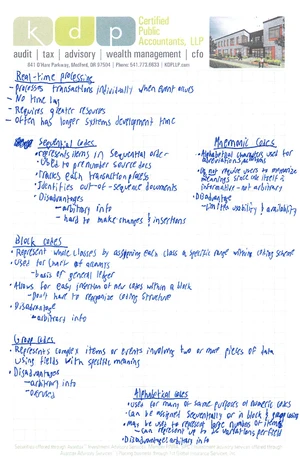 kdp
Certified
Public
Accountants, LLP
audit | tax | advisory | wealth management | cfo
841 O'Hare Parkway, Medford, OR 97504 | Phone: 541.773.6633 | KDPLLP.com
Real-time processing
- processes transactions individually when event occurs
- No time lag
- Requires greater resources
- often has longer systems development time
Sequential codes
• represents items in sequential order
• Used to prenumber source docs
• Tracks each transaction process
• Identifies out-of-sequence documents
• Disadvantages
- arbitrary info
- hard to make changes & insertions
Mnemonic Codes
• Alphabetical characters used for
abbreviations/acronyms
• Do not require users to memorize
meanings since code itself is
informative - not arbitrary
• Disadvantage
- limits usability & availability
Block codes
• Represent whole classes by assigning each class a specific range within coding scheme
• Used for chart of accounts
- basis of general ledger
• Allows for easy insertion of new codes within a block
- Don't have to reorganize coding structure
• Disadvantage
- arbitrary info
Group codes
• Represents complex items or events involving two or more pieces of data
using fields with specific meaning
• Disadvantages
- arbitrary info
- overuse
Alphabetical codes
• used for many of same purposes as numeric codes
• Can be assigned sequentially or in block & group coding
• may be used to represent large numbers of items
- Can represent up to 26 variations per field
• Disadvantages arbitrary info